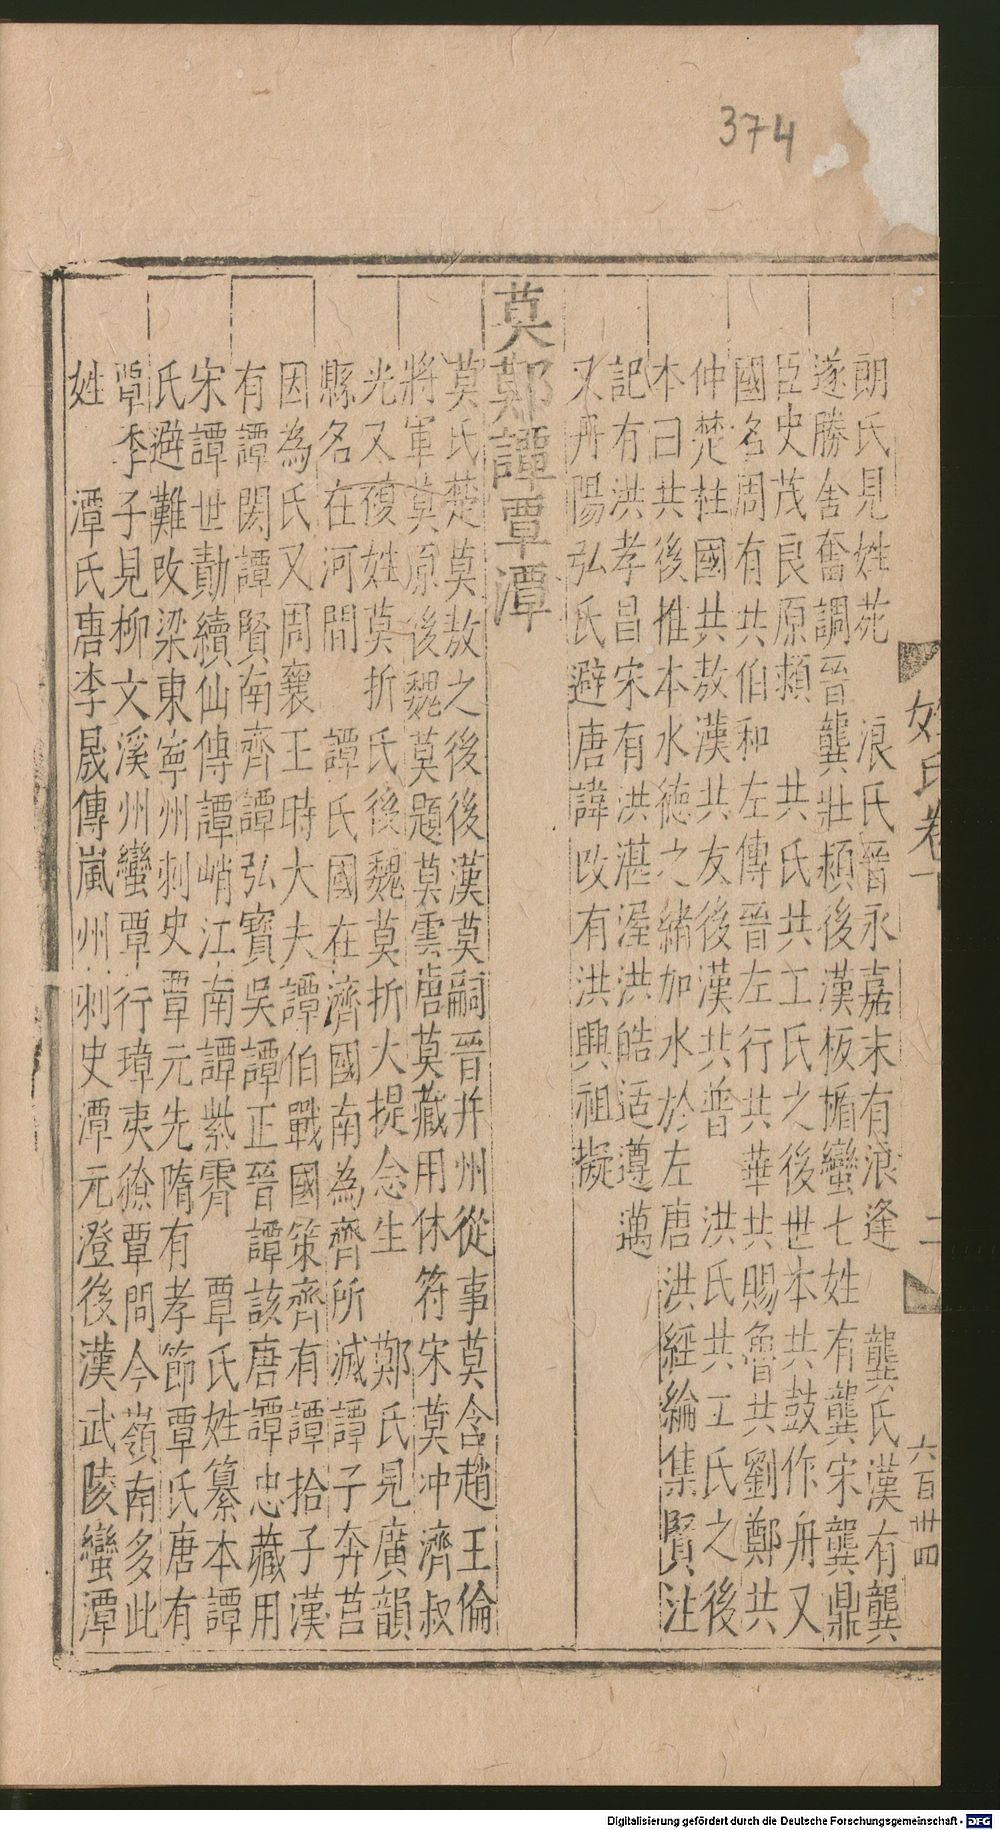 374
朗氏見姓苑 浪氏晉永嘉末有浪逢 龔氏漢有龔
遂勝舍奮調晉龔壯頳後漢板楯蠻七姓有龔宋龔鼎
臣史茂良原頳 共氏共工氏之後世本共鼓作舟又
國名周有共伯和左傳晉左行共華共賜魯共劉鄭共
仲楚柱國共敖漢共友後漢共普 洪氏共工氏之後
本曰共後推本水德之緒加水於左唐洪經綸集賢注
記有洪孝昌宋有洪湛渥洪皓适遵邁
又丹陽弘氏避唐諱改有洪興祖擬
莫鄚譚覃潭
莫氏楚莫敖之後後漢莫嗣晉并州從事莫含趙王倫
將軍莫原後魏莫題莫雲唐莫藏用休符宋莫沖濟叔
光又複姓莫折氏後魏莫折大提念生 鄚氏見廣韻
縣名在河間 譚氏國在濟國南為齊所滅譚子奔莒
因為氏又周襄王時大夫譚伯戰國策齊有譚拾子漢
有譚閎譚賢南齊譚弘寶吳譚正晉譚該唐譚忠藏用
宋譚世勣續仙傳譚峭江南譚紫霄 覃氏姓纂本譚
氏避難改梁東寧州刺史覃元先隋有孝節覃氏唐有
覃季子見柳文溪州蠻覃行璋夷獠覃問今嶺南多此
姓 潭氏唐李晟傳嵐州刺史潭元澄後漢武陵蠻潭
姓氏卷一
二
六百卅四
Digitalisierung gefördert durch die Deutsche Forschungsgemeinschaft - DFG